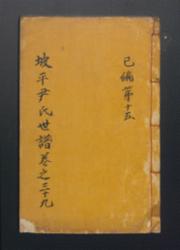 己編第十五
坡平尹氏世譜卷之三十九